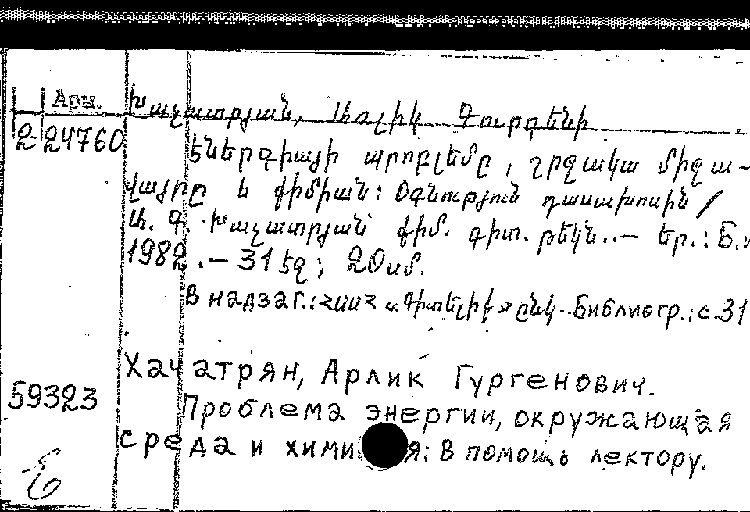 Арм.
Խաչատրյան, Առլիկ Գուրգենի
2 24760
Էներգիայի պրոբլեմը, շրջակա միջա-
վայրը և քիմիան: Օգնություն դասախոսին /
Ա. Գ. Խաչատրյան՝ քիմ. գիտ. թեկն..— Եր.: Б.и
1982.— 31 էջ; 20 սմ.
В надзаг.: ՀՍՍՀ «Գիտելիք» ընկ. Библиогр.: с. 31
Хачатрян, Арлик Гургенович.
59323
Проблема энергии, окружающая
среда и химия: В помощь лектору.